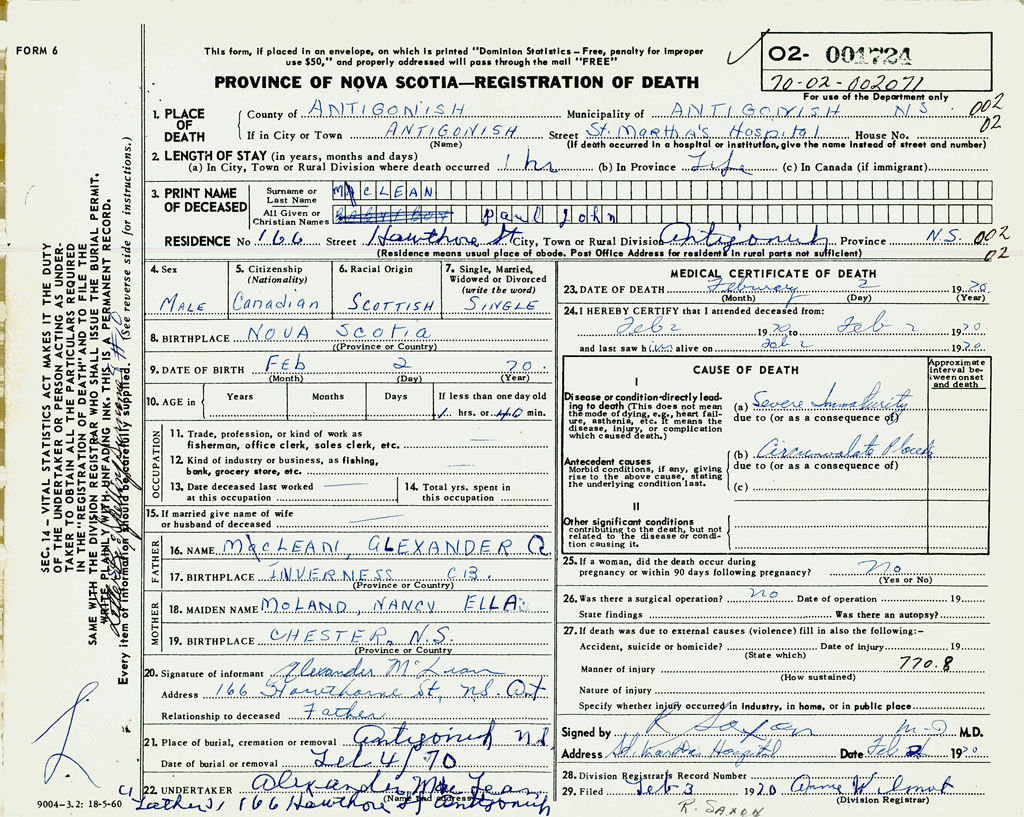 FORM 6
This form, if placed in an envelope, on which is printed "Dominion Statistics – Free, penalty for improper
use $50," and properly addressed will pass through the mail "FREE"
PROVINCE OF NOVA SCOTIA—REGISTRATION OF DEATH
02- 001724
70-02-002071
For use of the Department only
1. PLACE OF DEATH
County of ANTIGONISH Municipality of ANTIGONISH N S. 002
If in City or Town ANTIGONISH Street St. Martha's Hospital House No. 02
(Name) (If death occurred in a hospital or institution, give the name instead of street and number)
2. LENGTH OF STAY (in years, months and days)
(a) In City, Town or Rural Division where death occurred 1 hr (b) In Province Life (c) In Canada (if immigrant)
3. PRINT NAME OF DECEASED
Surname or Last Name MacLEAN
All Given or Christian Names Paul John
RESIDENCE No 166 Street Hawthorne St City, Town or Rural Division Antigonish Province N.S. 002
(Residence means usual place of abode. Post Office Address for residents in rural parts not sufficient) 02
4. Sex
MALE
5. Citizenship (Nationality)
Canadian
6. Racial Origin
SCOTTISH
7. Single, Married, Widowed or Divorced (write the word)
SINGLE
8. BIRTHPLACE NOVA SCOTIA
(Province or Country)
9. DATE OF BIRTH FEB 2 70
(Month) (Day) (Year)
10. AGE in Years Months Days If less than one day old
1 hrs. or 40 min.
OCCUPATION
11. Trade, profession, or kind of work as
fisherman, office clerk, sales clerk, etc.
12. Kind of industry or business, as fishing,
bank, grocery store, etc.
13. Date deceased last worked
at this occupation
14. Total yrs. spent in
this occupation
15. If married give name of wife
or husband of deceased
FATHER
16. NAME MacLEAN, ALEXANDER A
17. BIRTHPLACE INVERNESS C.B.
(Province or Country)
MOTHER
18. MAIDEN NAME MOLAND, NANCY ELLA
19. BIRTHPLACE CHESTER, N.S.
(Province or Country
20. Signature of informant Alexander McLean
Address 166 Hawthorne St, NS. Ant
Relationship to deceased Father
21. Place of burial, cremation or removal Antigonish N.S.
Date of burial or removal Feb 4/70
22. UNDERTAKER Alexander MacLean
(Name and address)
Father, 166 Hawthorne St Antigonish
9004-3.2: 18-5-60
MEDICAL CERTIFICATE OF DEATH
23. DATE OF DEATH February 2 1970
(Month) (Day) (Year)
24. I HEREBY CERTIFY that I attended deceased from:
Feb 2 1970 to Feb 2 1970
and last saw him alive on Feb 2 1970
CAUSE OF DEATH
Approximate interval between onset and death
I
Disease or condition directly leading to death (This does not mean the mode of dying, e.g., heart failure, asthenia, etc. It means the disease, injury, or complication which caused death.)
(a) Severe Immaturity
due to (or as a consequence of)
Antecedent causes
Morbid conditions, if any, giving rise to the above cause, stating the underlying condition last.
(b) Circumvalate
due to (or as a consequence of)
(c)
II
Other significant conditions
contributing to the death, but not related to the disease or condition causing it.
25. If a woman, did the death occur during
pregnancy or within 90 days following pregnancy? No
(Yes or No)
26. Was there a surgical operation? no Date of operation 19
State findings Was there an autopsy?
27. If death was due to external causes (violence) fill in also the following:–
Accident, suicide or homicide? Date of injury 19
(State which)
Manner of injury 770.8
(How sustained)
Nature of injury
Specify whether injury occurred in industry, in home, or in public place
Signed by R Saxon M-D M.D.
Address St. Marthas Hospital Date Feb 2 1970
28. Division Registrar's Record Number
29. Filed Feb 3 1970 Anne Wilmot
(Division Registrar)
R. SAXON
SEC. 14 – VITAL STATISTICS ACT MAKES IT THE DUTY
OF THE UNDERTAKER OR PERSON ACTING AS UNDER-
TAKER TO OBTAIN ALL THE PARTICULARS REQUIRED
IN THE "REGISTRATION OF DEATH" AND TO FILE THE
SAME WITH THE DIVISION REGISTRAR WHO SHALL ISSUE THE BURIAL PERMIT.
WRITE PLAINLY WITH UNFADING INK. THIS IS A PERMANENT RECORD.
Every item of information should be carefully supplied. (See reverse side for instructions.)